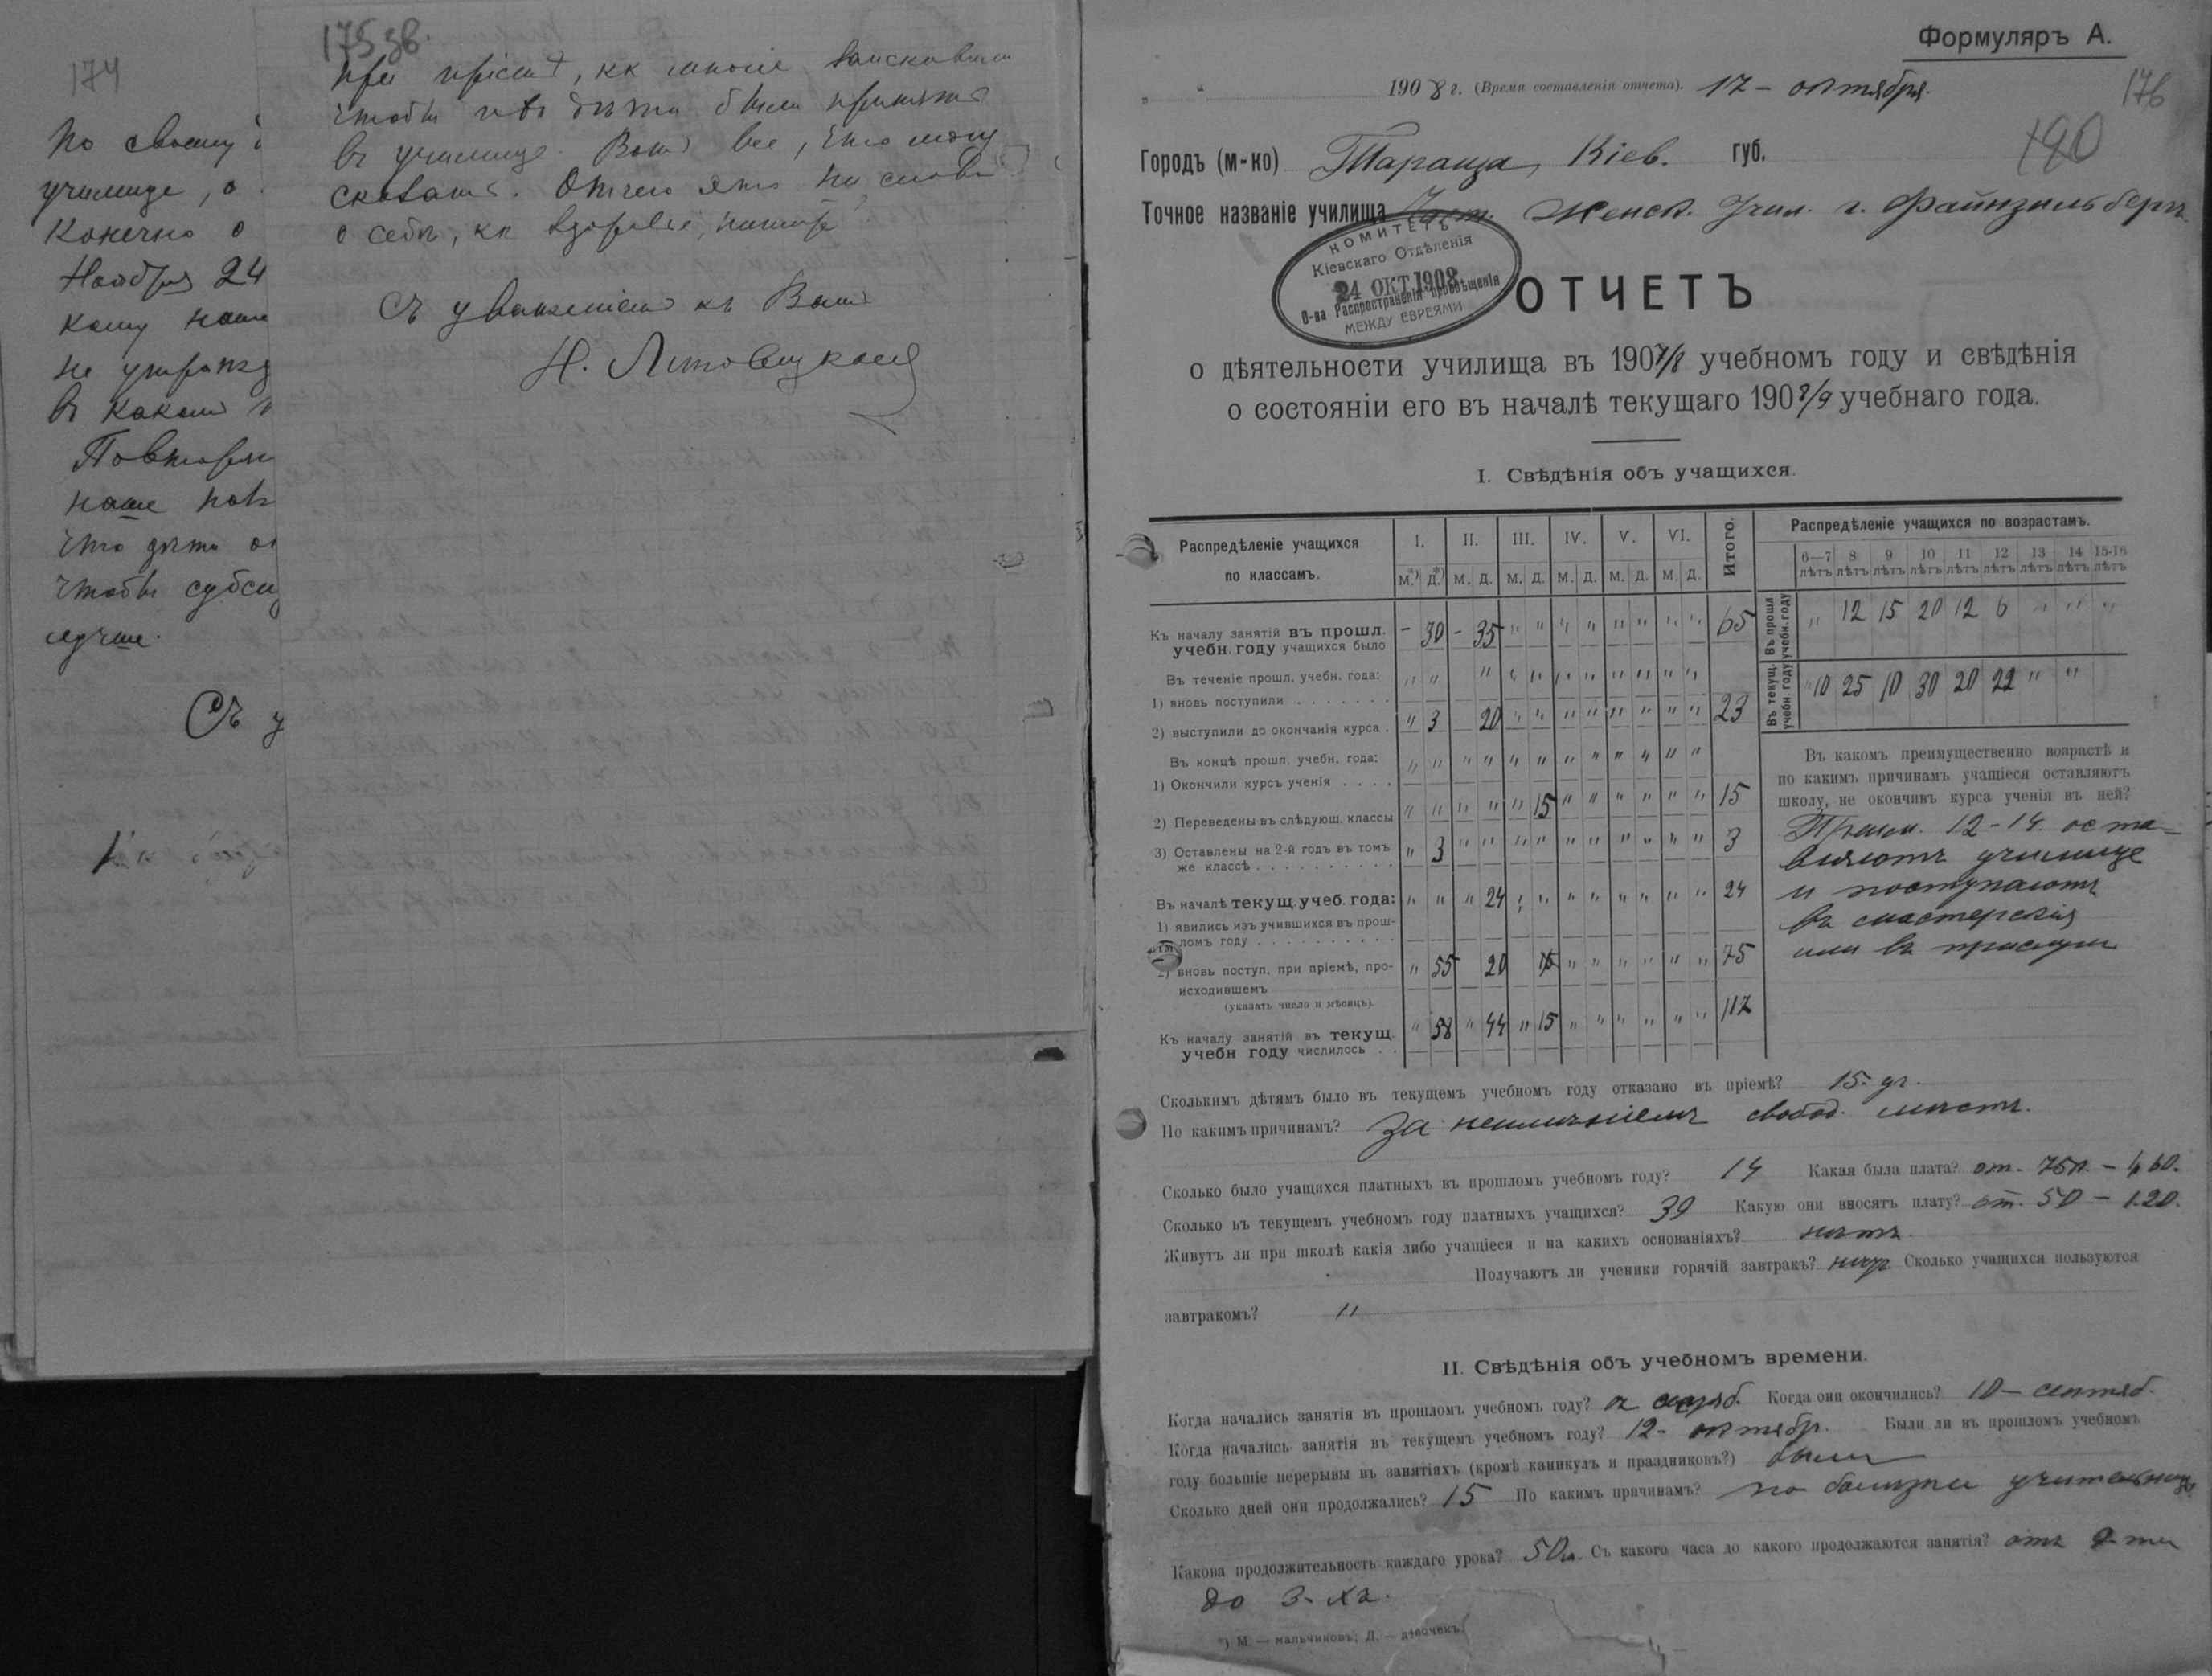 174
по своему
училище, о
Конечно о
Ноября 24
кому наше
не
въ каком
Повторяю
наше
что дети
чтобы субси
лучше.
Съ у
175 зв.
при
чтобы
въ училище. Вотъ все, что могу
сказать.
о себѣ, кк здоровье,
Съ уваженіемъ къ Вамъ
Н. Литовецкая
Формуляръ А.
176
190
1908 г. (Время составленія отчета). 17 – октября.
Городъ (м-ко) Тараща, Кіев. губ.
Точное названіе училища Част. Женск. Учил. г. Файнзильберг
КОМИТЕТЪ
Кіевскаго Отдѣленія
24 ОКТ. 1908
О-ва Распространенія просвѣщенія
МЕЖДУ ЕВРЕЯМИ
ОТЧЕТЪ
о дѣятельности училища въ 1907/8 учебномъ году и свѣдѣнія
о состояніи его въ началѣ текущаго 1908/9 учебнаго года.
I. Свѣдѣнія объ учащихся.
Распредѣленіе учащихся по классамъ. I. II. III. IV. V. VI. Итого.
м.*) д.*) м. д. м. д. м. д. м. д. м. д.
Къ началу занятій въ прошл. учебн. году учащихся было – 30 – 35 " " " " " " " " 65
Въ теченіе прошл. учебн. года: " " " " " " " " " " "
1) вновь поступили
2) выступили до окончанія курса " 3 20 " " " " " " " " 23
Въ концѣ прошл. учебн. года: " " " " " " " " " " " "
1) Окончили курсъ ученія
" " " " " 15 " " " " " " 15
2) Переведены въ слѣдующ. классы
3) Оставлены на 2-й годъ въ томъ же классѣ " 3 " " " " " " " " " " 3
Въ началѣ текущ. учеб. года: " " " 24 " " " " " " " " 24
1) явились изъ учившихся въ прошломъ году
2) вновь поступ. при пріемѣ, происходившемъ " 55 20 15 " " " " " " 75
(указать число и мѣсяцъ).
Къ началу занятій въ текущ. учебн году числилось " 58 " 44 " 15 " " " " " " 117
Распредѣленіе учащихся по возрастамъ.
6—7 лѣтъ 8 лѣтъ 9 лѣтъ 10 лѣтъ 11 лѣтъ 12 лѣтъ 13 лѣтъ 14 лѣтъ 15-16 лѣтъ
Въ прошл. учебн. году " 12 15 20 12 6 " " "
Въ текущ. учебн. году "10 25 10 30 20 22 " "
Въ какомъ преимущественно возрастѣ и
по какимъ причинамъ учащіеся оставляютъ
школу, не окончивъ курса ученія въ ней?
12-14 оста-
вляютъ училище
и поступаютъ
въ мастерскія
или въ прислуги
Сколькимъ дѣтямъ было въ текущемъ учебномъ году отказано въ пріемѣ? 15-
По какимъ причинамъ? За неимѣніемъ свобод. мѣстъ.
Сколько было учащихся платныхъ въ прошломъ учебномъ году? 14 Какая была плата? от. 75к. –
Сколько въ текущемъ учебномъ году платныхъ учащихся? 39 Какую они вносятъ плату? от. 50 – 1.20.
Живутъ ли при школѣ какія либо учащіеся и на какихъ основаніяхъ? нѣтъ.
Получаютъ ли ученики горячій завтракъ? Сколько учащихся пользуются
завтракомъ? "
II. Свѣдѣнія объ учебномъ времени.
Когда начались занятія въ прошломъ учебномъ году? Когда они окончились? 10 – сентяб.
Когда начались занятія въ текущемъ учебномъ году? 12- октябр. Были ли въ прошломъ учебномъ
году большіе перерывы въ занятіяхъ (кромѣ каникулъ и праздниковъ?) были
Сколько дней они продолжались? 15 По какимъ причинамъ? по болѣзни учительницы
Какова продолжительность каждаго урока? 50м. Съ какого часа до какого продолжаются занятія? отъ 9-ти
до 3-хъ.
*) М. — мальчиковъ; Д. — дѣвочекъ.